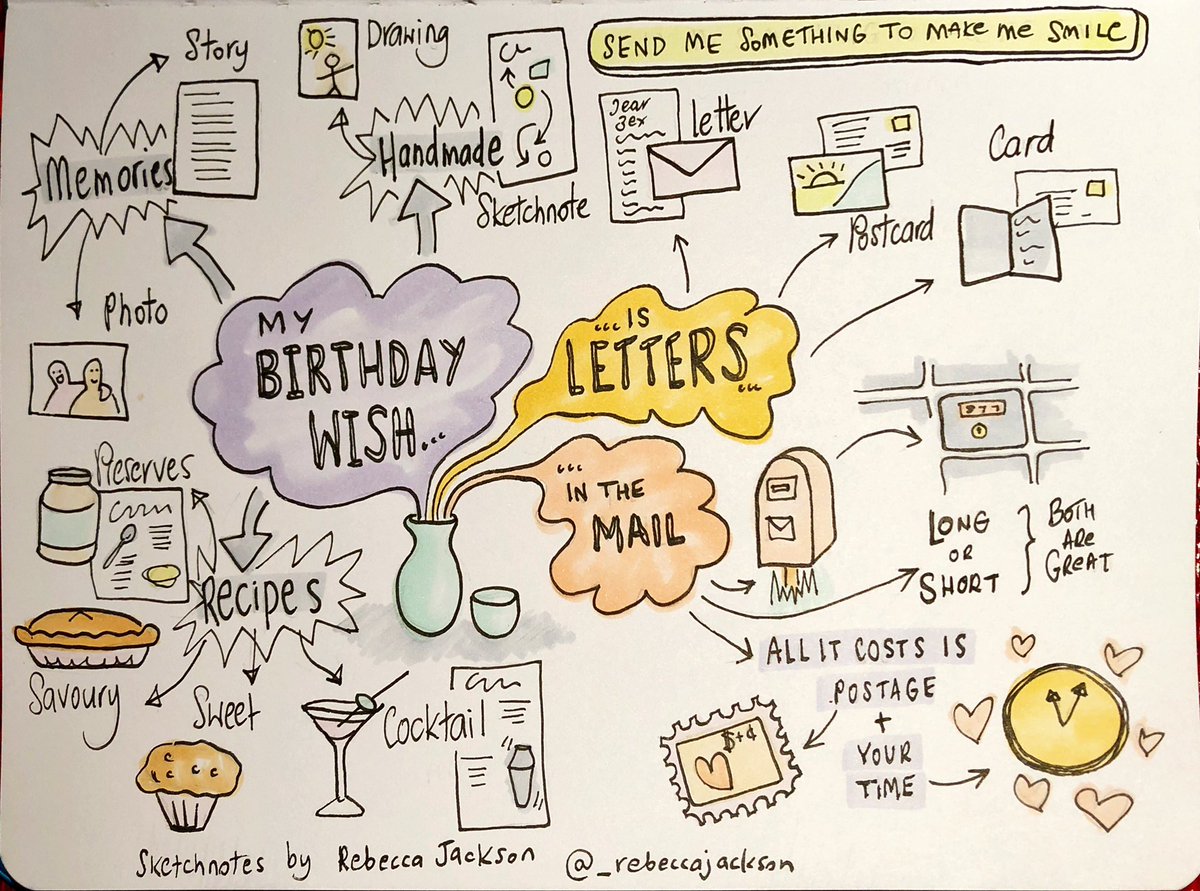 SEND ME SOMETHING TO MAKE ME SMILE
Story
Memories
Photo
Drawing
Handmade
Sketchnote
Dear
Bex
Letter
Postcard
Card
MY
BIRTHDAY
WISH...
...IS
LETTERS...
...
IN THE
MAIL
LONG
OR
SHORT
BOTH
ARE
GREAT
ALL IT COSTS IS
POSTAGE
+
YOUR
TIME
$+¢
Preserves
Recipes
Savoury
Sweet
Cocktail
Sketchnotes by Rebecca Jackson @_rebeccajackson